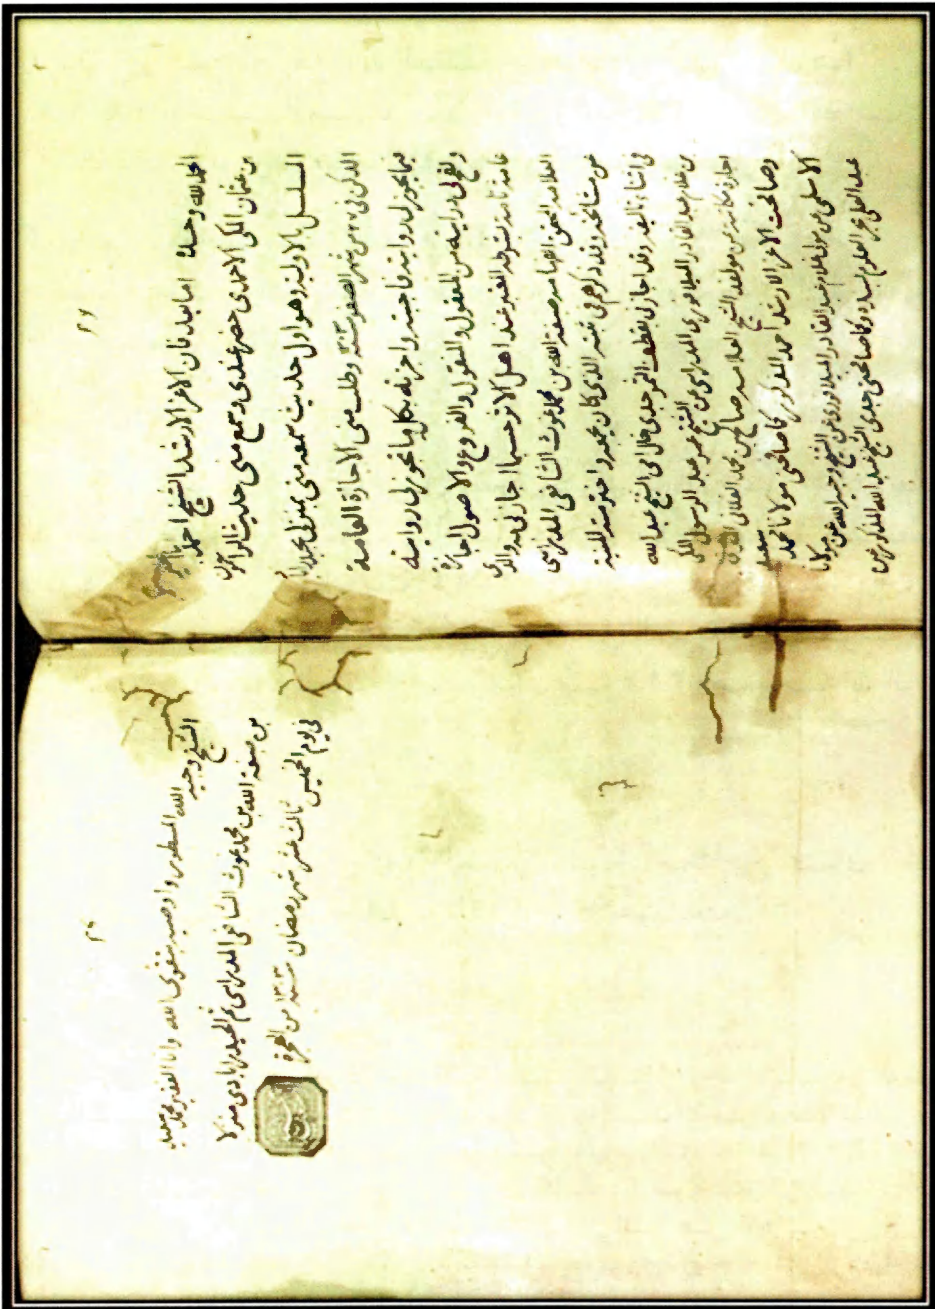 ٢٦
الحمد لله وحده اما بعد فان الاعز الارشد الشيخ احمد
بن عثمان المكي الاحمدي حضر عندي وسمع مني حديث الراحمون
المسلسل بالاولية وهو اول حديث سمعه مني بمنزلي بحيدراباد
الدكن في من شهر الصفر سنة ١٣٠٣ وطلب مني الاجازة العامة
فيما يجوز لي روايته فاجبته واجزته بكل ما تجوز لي روايته
وتصح لي درايته من المعقول والمنقول والفروع والاصول اجازة
عامة تامة بشرطه المعتبر عند اهل الاثر حسبما اجازني به والدي
العلامة المحقق الفهامة صبغة الله بن محمد غوث الشافعي المدراسي
عن مشائخه وقد ذكرهم في ثبته الذي كان
في اثنائه القدر وقد اجازني بقطف الثمر جدي خال امي الشيخ عبد الله
عن غلام عبد القادر المدراسي عن الشيخ عمر عبد الرسول المكي
اجازة عن مؤلفه الشيخ العلامة صالح بن محمد الفلاني
وصافحت الاعز الارشد احمد المذكور كما صافحني مولانا محمد سعيد
الاسلمي عن مولى غلام عبد القادر عن الشيخ وجيه الله عن
عبد العلي بحر العلوم وكما صافحني جدي الشيخ عبد الله المذكور عن
٢٧
الشيخ وجيه الله المسطور واوصيه بتقوى الله وانا الفقير محمد سعيد
بن صبغة الله بن محمد غوث الشافعي المدراسي ثم الحيدرابادي منزلا
في يوم الخميس ثالث عشر شهر رمضان سنة ١٣٠٣ من الهجرة